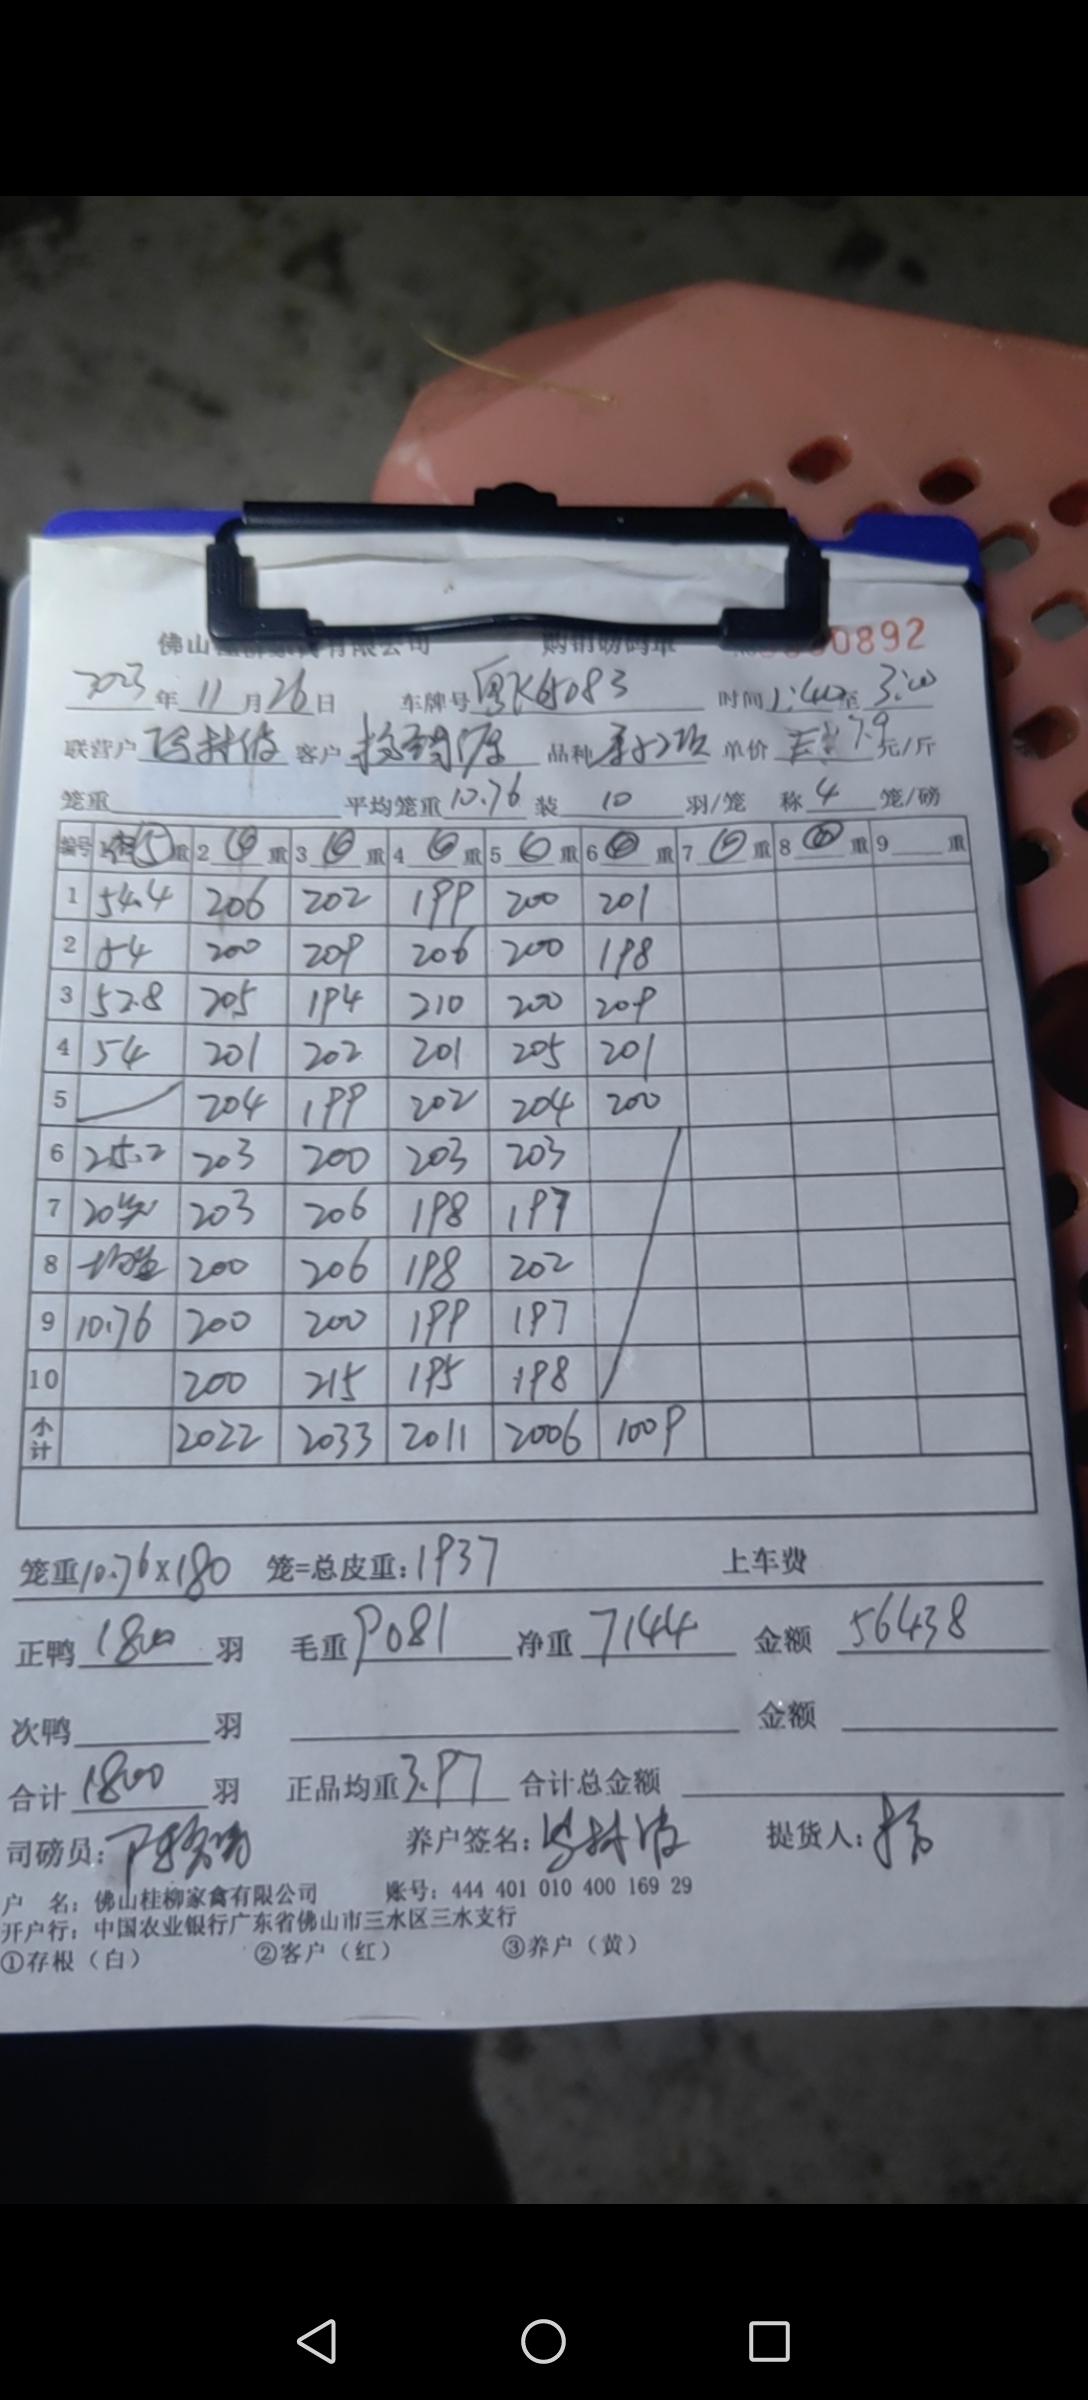 佛山桂柳家禽有限公司 购销磅码单 0892
2023年 11月 26日 车牌号 粤K65083 时间 1:40至 3:00
联营户 客户 品种 单价 7.9 元/斤
笼重 平均笼重 10.76 装 10 羽/笼 称 4 笼/磅
编号 重 2 重 3 重 4 重 5 重 6 重 7 重 8 重 9 重
1 54.4 206 202 199 200 201
2 54 200 209 206 200 198
3 52.8 205 194 210 200 209
4 54 201 202 201 205 201
5 204 199 202 204 200
6 215.2 203 200 203 203
7 20 203 206 198 197
8 200 206 198 202
9 10.76 200 200 199 197
10 200 215 195 198
小计 2022 2033 2011 2006 1009
笼重10.76×180 笼=总皮重:1937 上车费
正鸭 1800 羽 毛重 9081 净重 7144 金额 56438
次鸭 羽 金额
合计 1800 羽 正品均重 3.97 合计总金额
司磅员: 养户签名: 提货人:
户 名: 佛山桂柳家禽有限公司 账号: 444 401 010 400 169 29
开户行: 中国农业银行广东省佛山市三水区三水支行
①存根（白） ②客户（红） ③养户（黄）